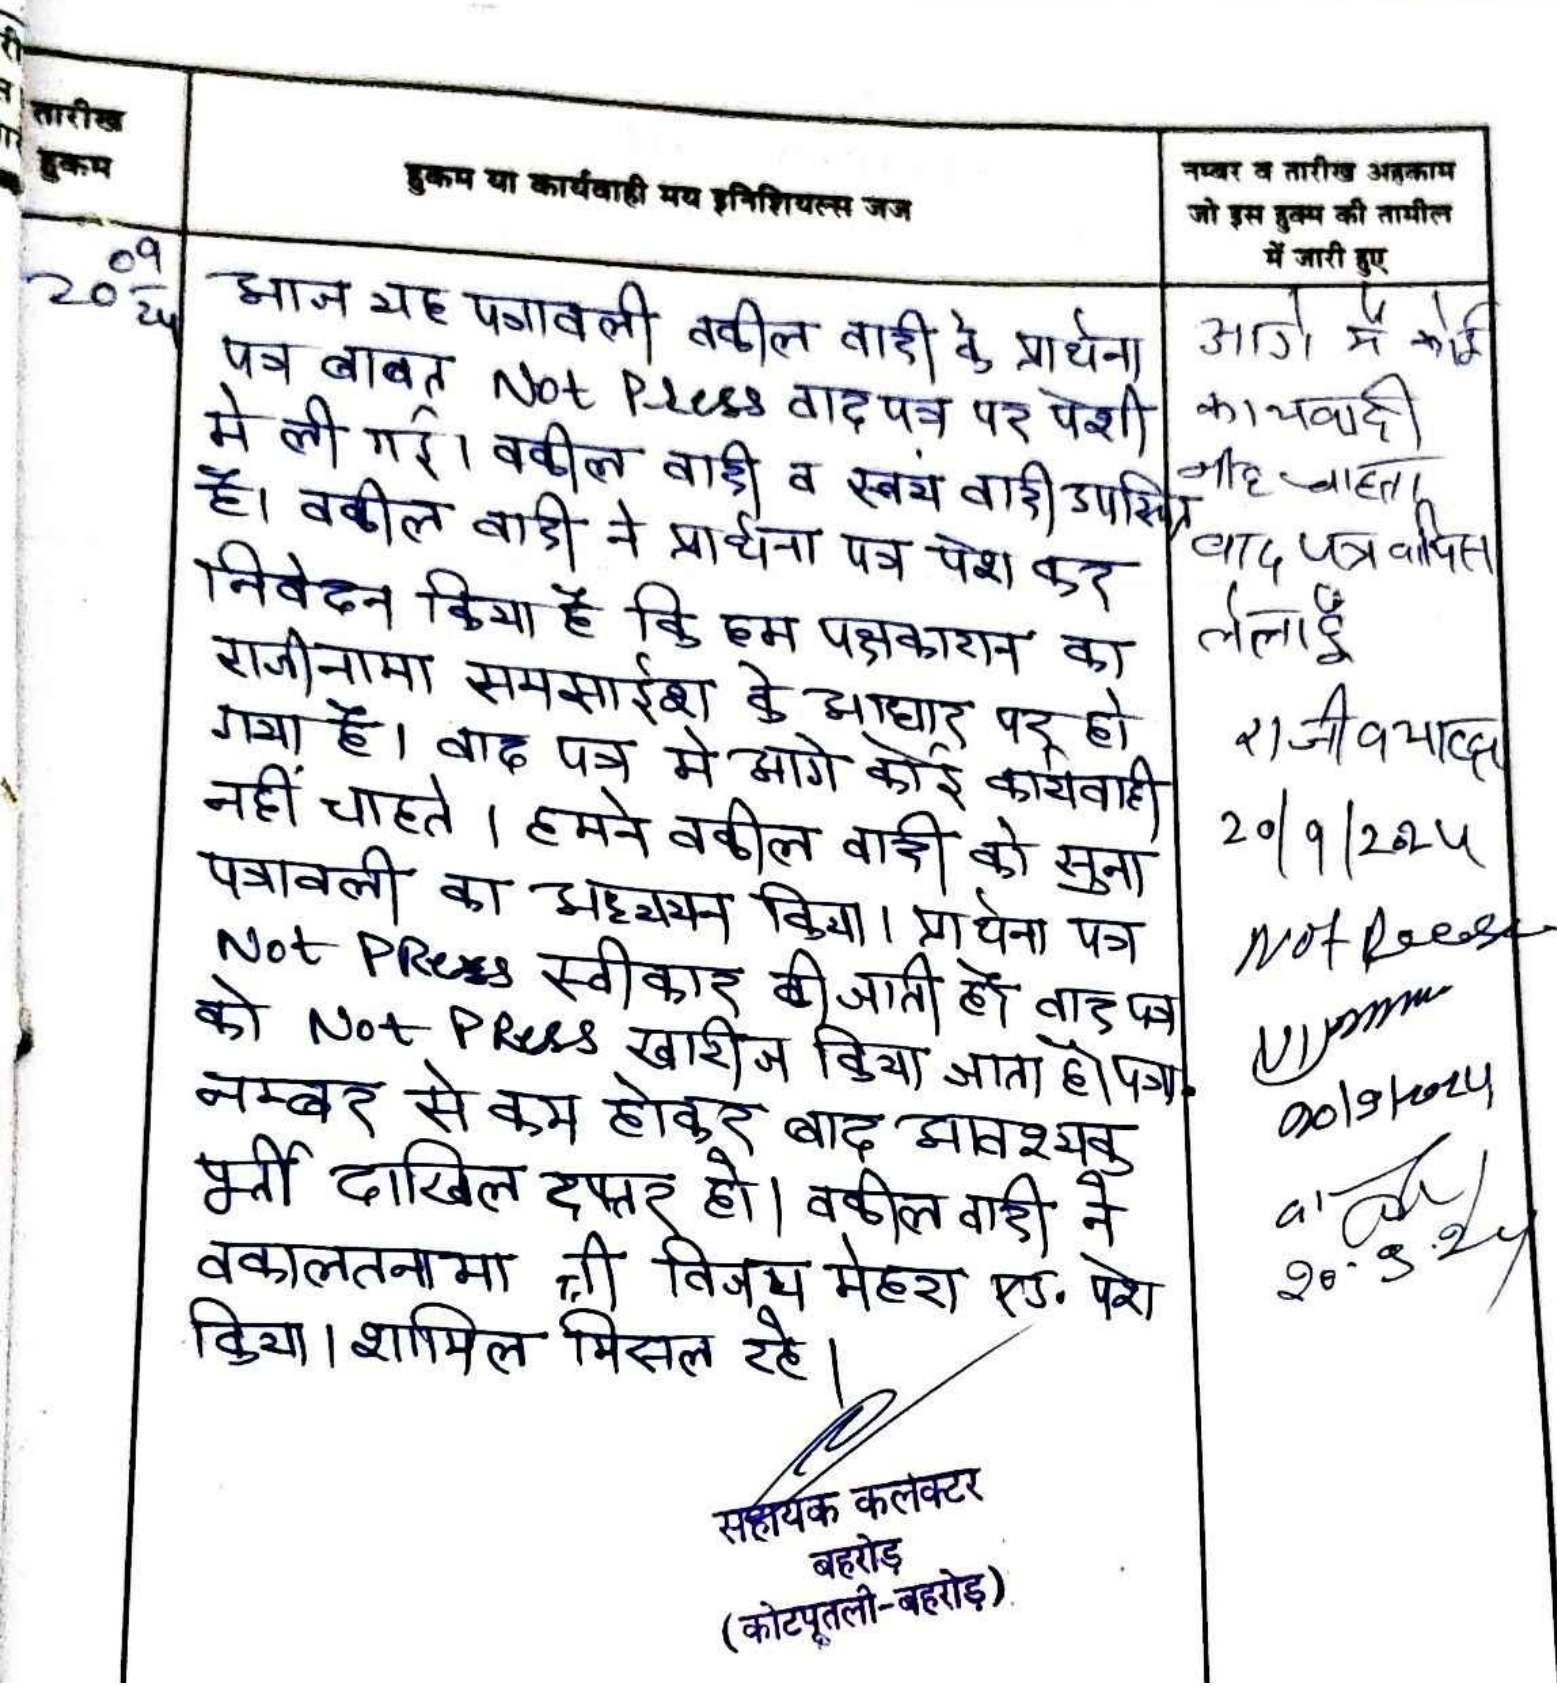 तारीख
हुकम
हुकम या कार्यवाही मय इनिशियल्स जज
नम्बर व तारीख अहकाम
जो इस हुक्म की तामील
में जारी हुए
20 09
24
आज यह पत्रावली वकील वादी के प्रार्थना
पत्र बाबत Not Press वाद पत्र पर पेशी
मे ली गई। वकील वादी व स्वयं वादी उपस्थित
है। वकील वादी ने प्रार्थना पत्र पेश कर
निवेदन किया है कि हम पक्षकारान का
राजीनामा समसाईश के आधार पर हो
गया है। वाद पत्र मे आगे कोई कार्यवाही
नहीं चाहते। हमने वकील वादी को सुना
पत्रावली का अध्ययन किया। प्रार्थना पत्र
Not PRess स्वीकार की जाती है। वाद पत्र
को Not PRess खारीज किया जाता है। पत्रा.
नम्बर से कम होकर बाद आवश्यक
पूर्ती दाखिल दफ्तर हो। वकील वादी ने
वकालतनामा श्री विजय मेहरा एड. पेश
किया। शामिल मिसल रहे।
सहायक कलेक्टर
बहरोड़
(कोटपूतली-बहरोड़)
आगे मैं कोई
कायवाही
नीह चाहता
वाद पत्र वापिस
लेता हूँ
राजीव यादव
20/9/2024
Not Press
20/9/2024
20.9.24